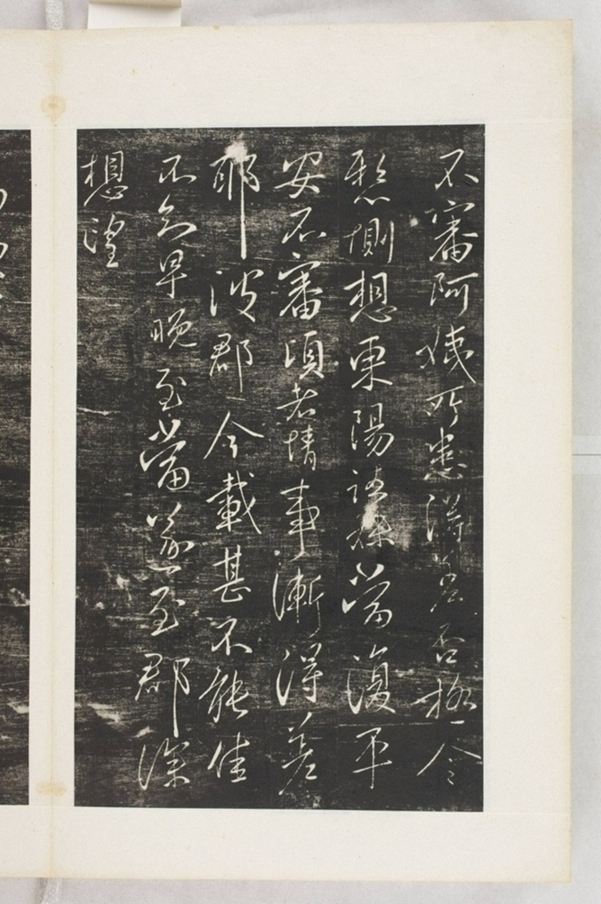 不審阿姨所患得差否極令
愁惻想東陽諸妹當復平
安不審頃者情事漸得差
耶彼郡今載甚不能佳
不知早晚至當遂至郡深
想望